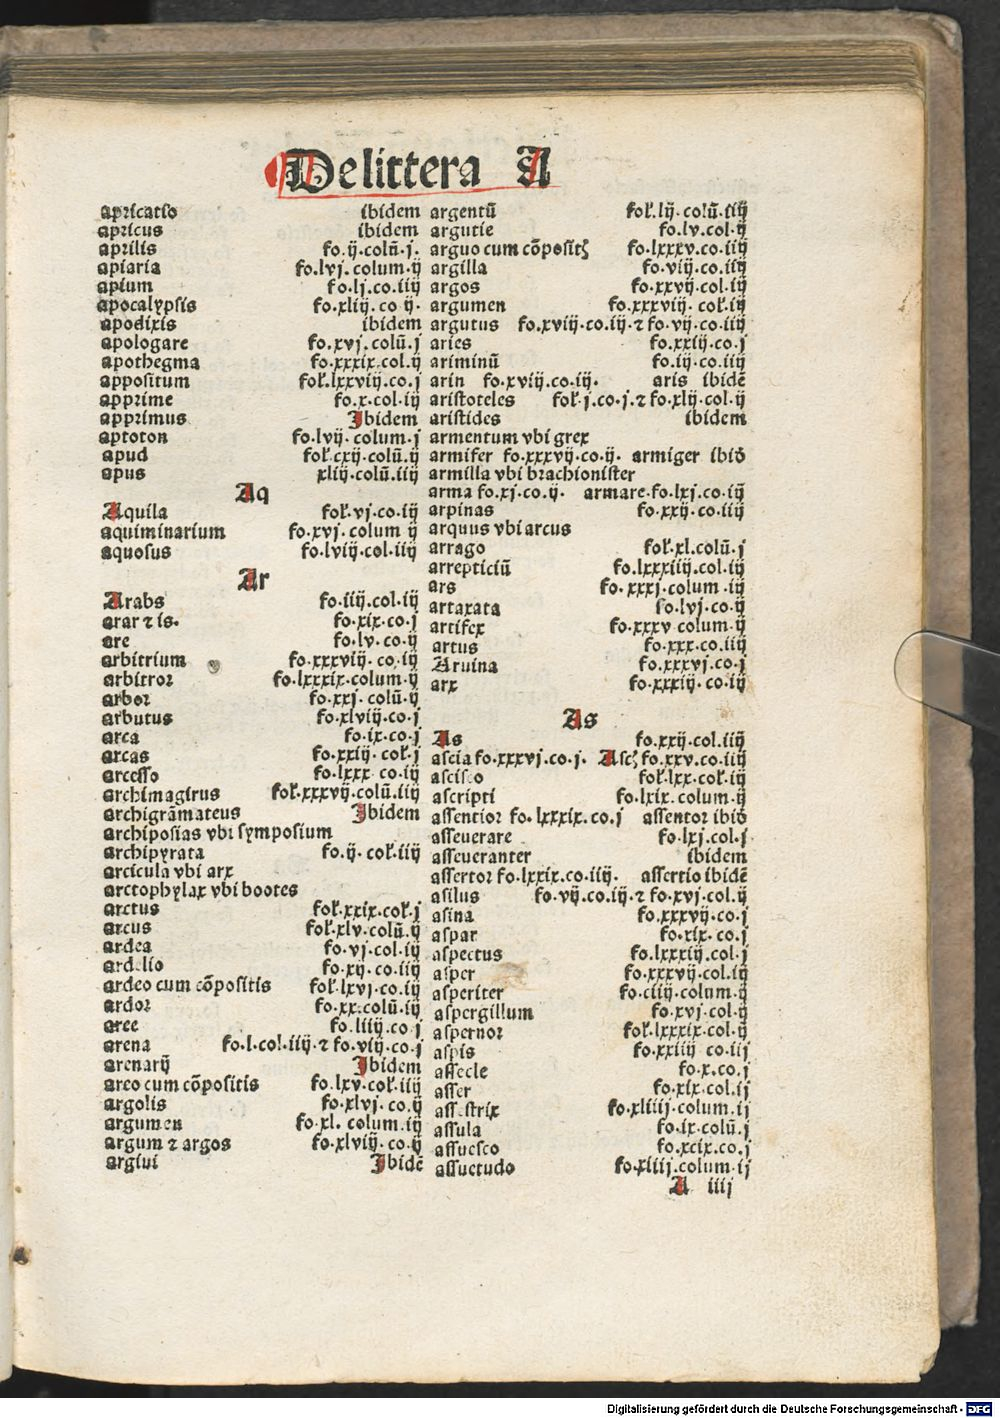 De littera A
apricatio ibidem
apricus ibidem
aprilis fo.ij.colū.j.
apiaria fo.lvj.colum.ij
apium fo.lj.co.iij
apocalypsis fo.xliij.co ij.
apodixis ibidem
apologare fo.xvj.colū.j
apothegma fo.xxxix.col.ij
appositum fol.lxxviij.co.j
apprime fo.x.col.iij
apprimus Ibidem
aptoton fo.lvij.colum.j
apud fol.cxij.colū.ij
apus xliij.colū.iiij
Aq
Aquila fol.vj.co.iij
aquiminarium fo.xvj.colum ij
aquosus fo.lviij.col.iiij
Ar
Arabs fo.iiij.col.iij
arar ⁊ is. fo.xix.co.j
are fo.lv.co.ij
arbitrium fo.xxxviij.co.iij
arbitror fo.lxxxix.colum.ij
arbor fo.xxj.colū.ij
arbutus fo.xlviij.co.j
arca fo.ix.co.j
arcas fo.xxiij.col.j
arcesso fo.lxxx co.iij
archimagirus fol.xxxvij.colū.iij
archigrāmateus Ibidem
archiposias vbi symposium
archipyrata fo.ij.col.iiij
arcicula vbi arx
arctophylax vbi bootes
arctus fol.xxix.col.j
arcus fol.xlv.colū.ij
ardea fo.vj.col.iij
ardelio fo.xij.co.iiij
ardeo cum cōpositis fol.lxvj.co.iij
ardor fo.xx.colū.iij
aree fo.liiij.co j
arena fo.l.col.iiij.⁊ fo.viij.co.j
arenarij Ibidem
areo cum cōpositis fo.lxv.col.iiij
argolis fo.xlvj.co.ij
argumen fo.xl.colum.iij
argum ⁊ argos fo.xlviij.co.ij
argiui Ibidē
argentū fol.lij.colū.iiij
argutie fo.lv.col.ij
arguo cum cōposit fo.lxxxv.co.iij
argilla fo.viij.co.iiij
argos fo.xxvij.col.ij
argumen fo.xxxviij.col.ij
argutus fo.xviij.co.iij.⁊ fo.vij.co.iiij
aries fo.xxiij.co.j
ariminū fo.iij.co.iiij
arin fo.xviij.co.iij. aris ibidē
aristoteles fol.j.co.j.⁊ fo.xlij.col.ij
aristides ibidem
armentum vbi grex
armifer fo.xxxvij.co.ij. armiger ibid
armilla vbi brachionister
arma fo.xj.co.ij. armare.fo.lxj.co.iij
arpinas fo.xxij.co.iiij
arquus vbi arcus
arrago fol.xl.colū.j
arrepticiū fo.lxxxiiij.col.ij
ars fo.xxxj.colum.iij
artaxata fo.lvj.co.ij
artifex fo.xxxv colum.ij
artus fo.xxx.co.iiij
Aruina fo.xxxvj.co.j
arx fo.xxxiij.co.iij
As
As fo.xxij.col.iiij
ascia fo.xxxvj.co.j. Asc fo.xxv.co.iiij
ascisco fol.lxx.col.iij
ascripti fo.lxix.colum.ij
assentior fo.lxxxix.co.j assentor ibid
asseuerare fo.lxj.col.j
asseueranter ibidem
assertor fo.lxxix.co.iiij. assertio ibidē
asilus fo.vij.co.iij.⁊ fo.xvj.col.ij
asina fo.xxxvij.co.j
aspar fo.xix.co.j
aspectus fo.lxxxiij.col.j
asper fo.xxxvij.col.iij
asperiter fo.ciij.colum.ij
aspergillum fo.xvj.col.ij
aspernor fol.lxxxix.col.ij
aspis fo.xxiiij co.iij
assecle fo.x.co.j
asser fo.xix.col.ij
assestrix fo.xliiij.colum.ij
assula fo.ix.colū.j
assuesco fo.xcix.co.j
assuetudo fo.xiiij.colum.ij
A iiij
Digitalisierung gefördert durch die Deutsche Forschungsgemeinschaft - DFG